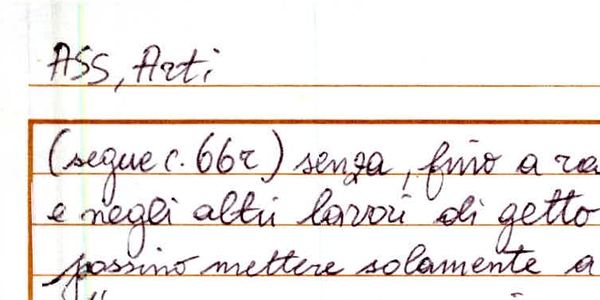 ASS, Arti
(segue c. 66r) senza, fino a ra
e negli altri lavori di getto
possino mettere solamente a